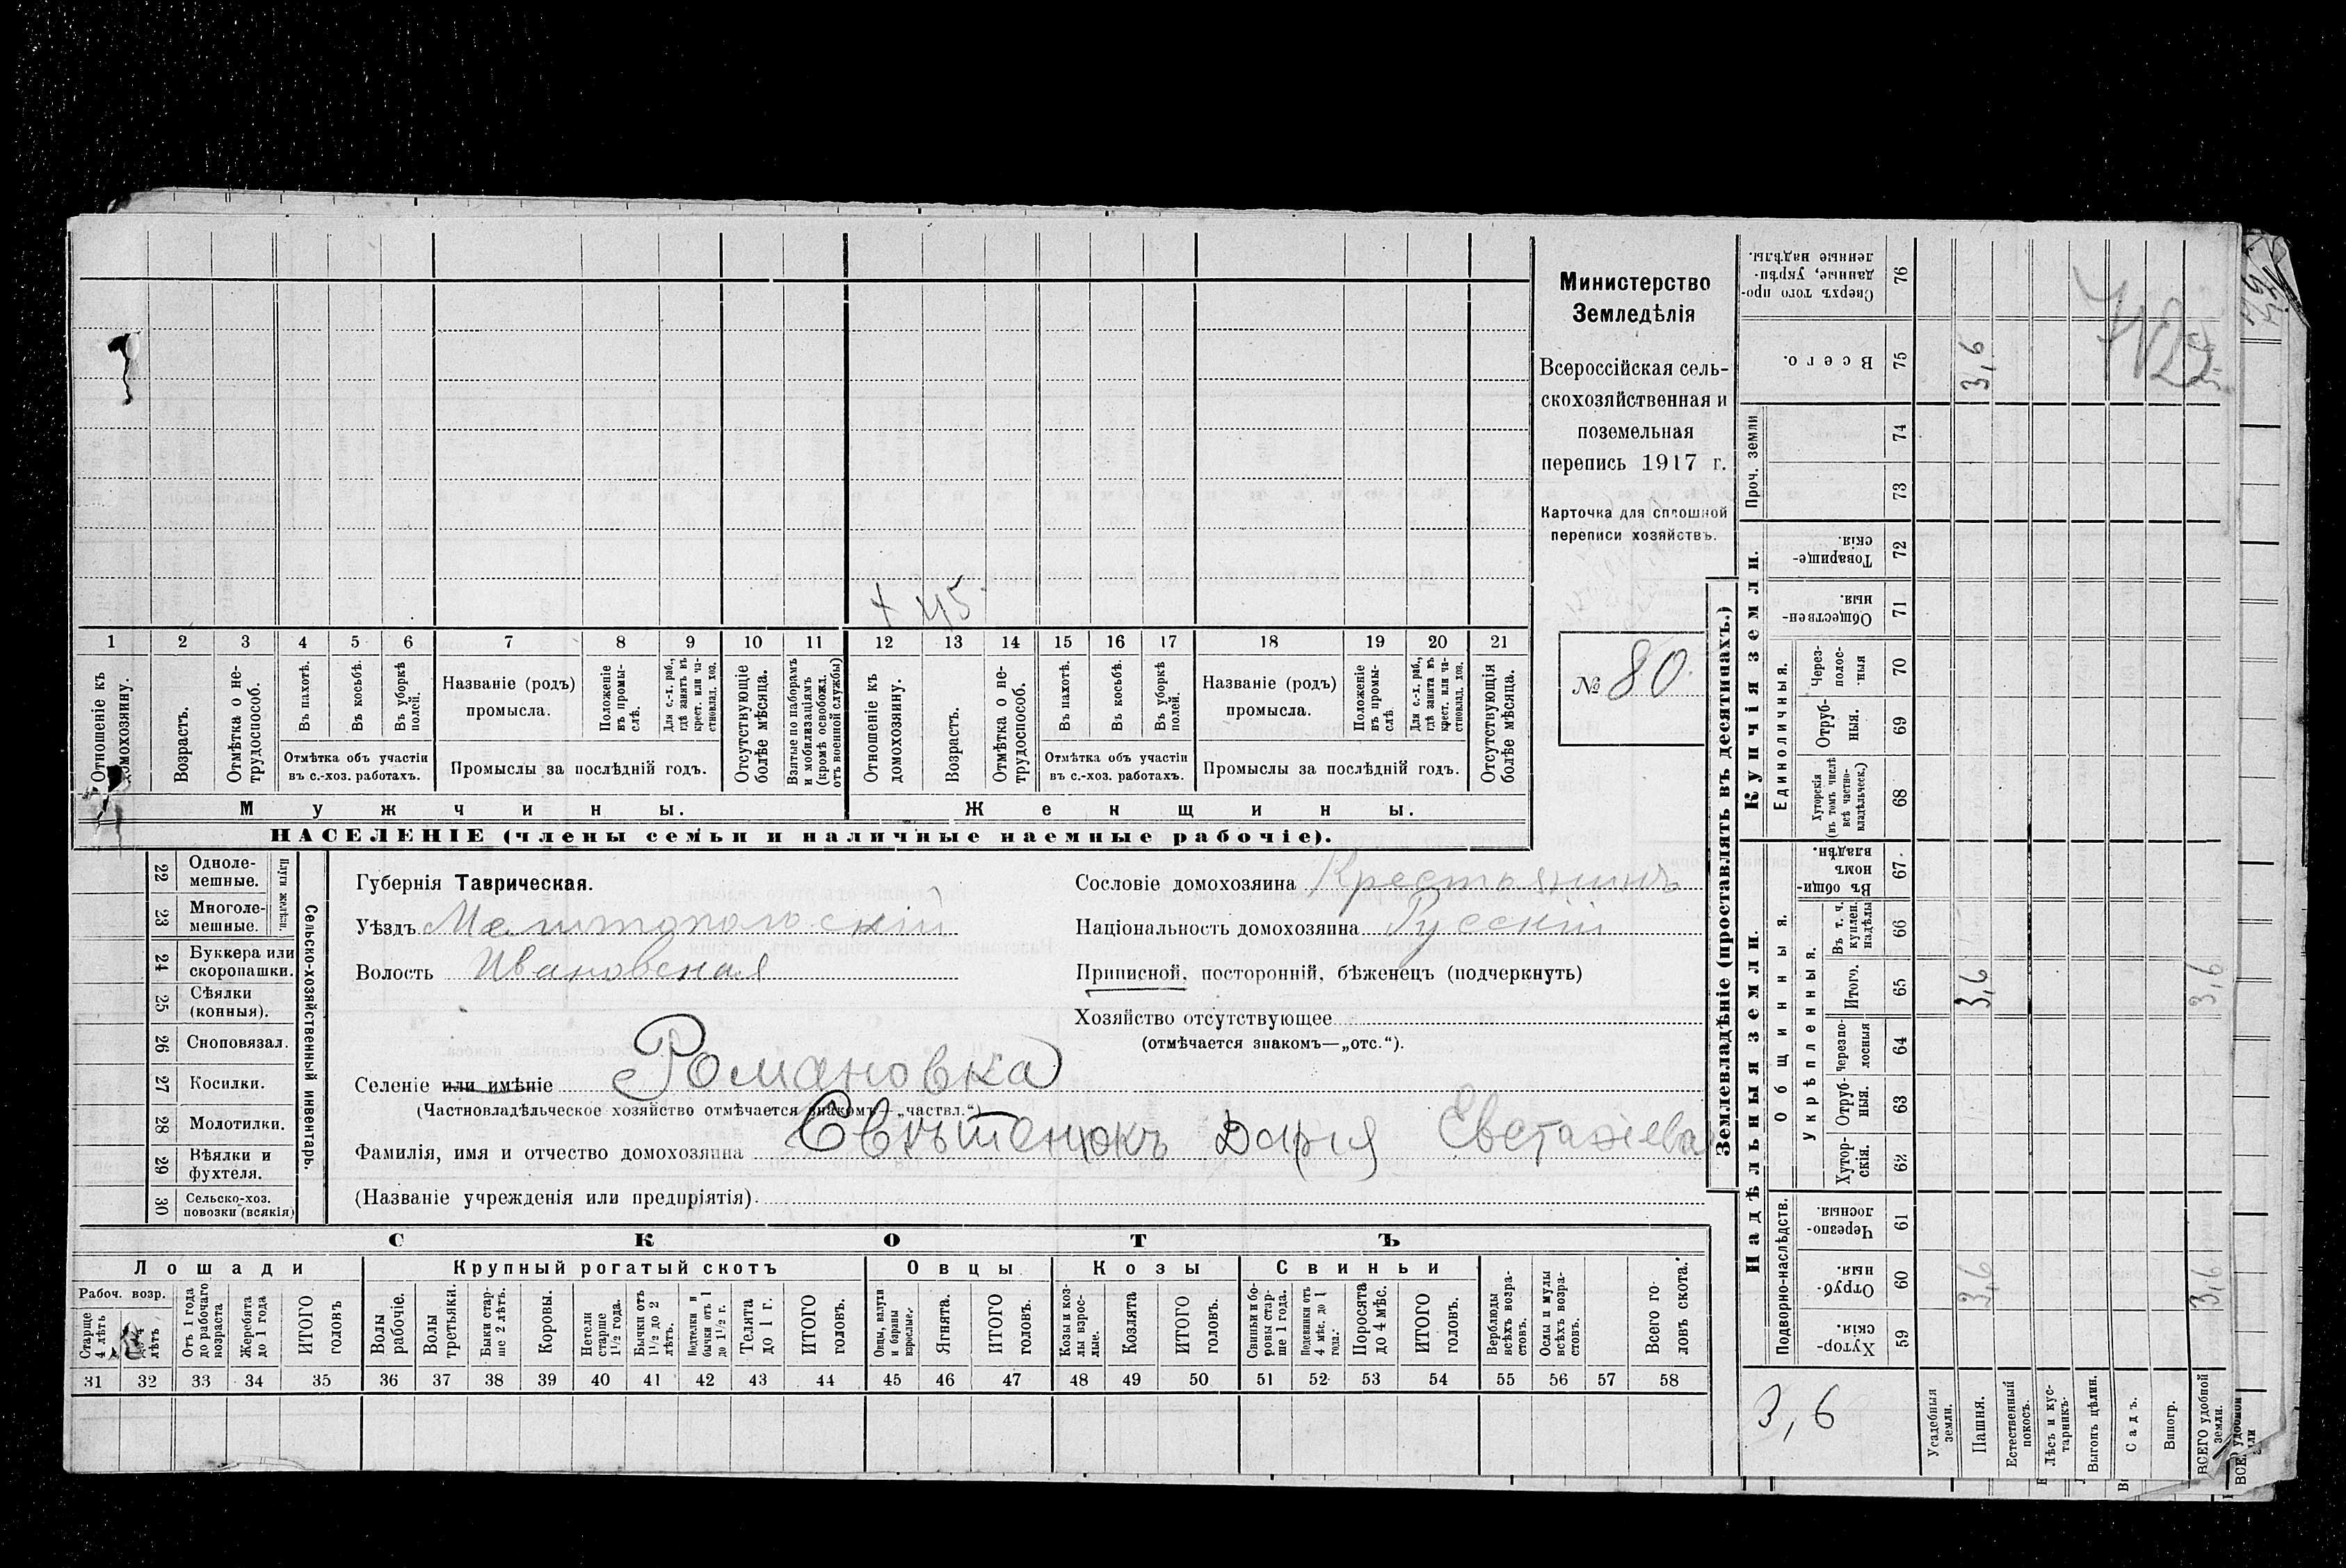 Министерство
Земледѣлія
Всероссійская сель-
скохозяйственная и
поземельная
перепись 1917 г.
Карточка для сплошной
переписи хозяйствъ.
№ 80
+ 45
1 2 3 4 5 6 7 8 9 10 11 12 13 14 15 16 17 18 19 20 21
Отношеніе къ домохозяину.
Возрастъ.
Отмѣтка о не-трудоспособ.
Въ пахотѣ.
Въ косьбѣ.
Въ уборкѣ полей.
Отмѣтка объ участіи
въ с.-хоз. работахъ.
Названіе (родъ)
промысла.
Положеніе въ промы-слѣ.
Для с.-х. раб., гдѣ занятъ въ крест. или ча-стновлад. хоз.
Промыслы за послѣдній годъ.
Отсутствующіе болѣе мѣсяца.
Взятые по наборамъ и мобилизаціямъ (кромѣ освобожл. отъ военной службы)
Отношеніе къ домохозяину.
Возрастъ.
Отмѣтка о не-трудоспособ.
Въ пахотѣ.
Въ косьбѣ.
Въ уборкѣ полей.
Отмѣтка объ участіи
въ с.-хоз. работахъ.
Названіе (родъ)
промысла.
Положеніе въ промы-слѣ.
Для с.-х. раб., гдѣ занята въ крест. или ча-стновлад. хоз.
Промыслы за послѣдній годъ.
Отсутствующія болѣе мѣсяца.
Мужчины. Женщины.
НАСЕЛЕНІЕ (члены семьи и наличные наемные рабочіе).
22 Одноле-мешные.
23 Многоле-мешные.
Плуги желѣзн.
24 Буккера или скоропашки.
25 Сѣялки (конныя).
26 Сноповязал.
27 Косилки.
28 Молотилки.
29 Вѣялки и фухтеля.
30 Сельско-хоз. повозки (всякія)
Сельско-хозяйственный инвентарь.
Губернія Таврическая.
Уѣздъ Мелитопольскій
Волость Ивановская
Сословіе домохозяина Крестьянинъ
Національность домохозяина Русскій
Приписной, посторонній, бѣженецъ (подчеркнуть)
Хозяйство отсутствующее
(отмѣчается знакомъ—„отс.“).
Селеніе или имѣніе Романовка
(Частновладѣльческое хозяйство отмѣчается знакомъ—„частвл.“)
Фамилія, имя и отчество домохозяина Дарія Евстахіева
(Названіе учрежденія или предпріятія)
СКОТЪ
Лошади Крупный рогатый скотъ Овцы Козы Свиньи
Рабоч. возр.
Старще 4 лѣтъ
лѣтъ
Отъ 1 года до рабочаго возраста
Жеребята до 1 года
ИТОГО головъ
Волы рабочіе.
Волы третьяки.
Быки стар-ше 2 лѣтъ.
Коровы.
Нетели старше 1½ года.
Бычки отъ 1½ до 2 лѣтъ.
Подтелки и бычки отъ 1 до 1½ г.
Телята до 1 г.
ИТОГО головъ.
Овцы, валухи и бараны взрослые.
Ягнята.
ИТОГО головъ.
Козы и коз-лы взрос-лые.
Козлята
ИТОГО головъ.
Свиньи и бо-ровы стар-ше 1 года.
Подсвинки отъ 4 мѣс. до 1 года.
Поросята до 4 мѣс.
ИТОГО головъ.
Верблюды всѣхъ возра-стовъ.
Ослы и мулы всѣхъ возра-стовъ.
Всего го ловъ скота.
31 32 33 34 35 36 37 38 39 40 41 42 43 44 45 46 47 48 49 50 51 52 53 54 55 56 57 58
Землевладѣніе (проставлять въ десятинахъ.)
Надѣльныя земли. Купчія земли.
Подворно-наслѣдств.
Общинныя.
Укрѣпленныя.
Единоличныя.
Проч. земли
Сверхъ того про-данные, укрѣп-ленные надѣлы. 76
Всего. 75 3,6
74
73
Товарище-скія. 72
Обществен-ныя. 71
Через-полос-ныя 70
Отруб-ныя. 69
Хуторскія (въ томъ числѣ всѣ частно-владѣльческ.) 68
Въ общи-номъ владѣн. 67
Въ т. ч. куплен. надѣлы 66
Итого. 65 3,6 3,6
Черезпо-лосныя 64
Отруб-ныя. 63
Хутор-скія. 62
Черезпо-лосныя. 61
Отруб-ныя. 60 3,6 3,6
Хутор-скія. 59
3,6
Усадебныя земли.
Пашня.
Естественный покосъ.
Лѣсъ и кус-тарникъ.
Выгонъ цѣлин.
Садъ.
Виногр.
ВСЕГО удобной земли.